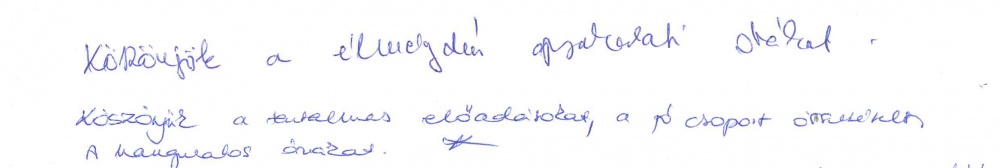 Köszönjük a élménydús gyakorlati órákat.
Köszönjük a tartalmas előadásokat, a jó csoport összetételt,
A hangulatos órákat.